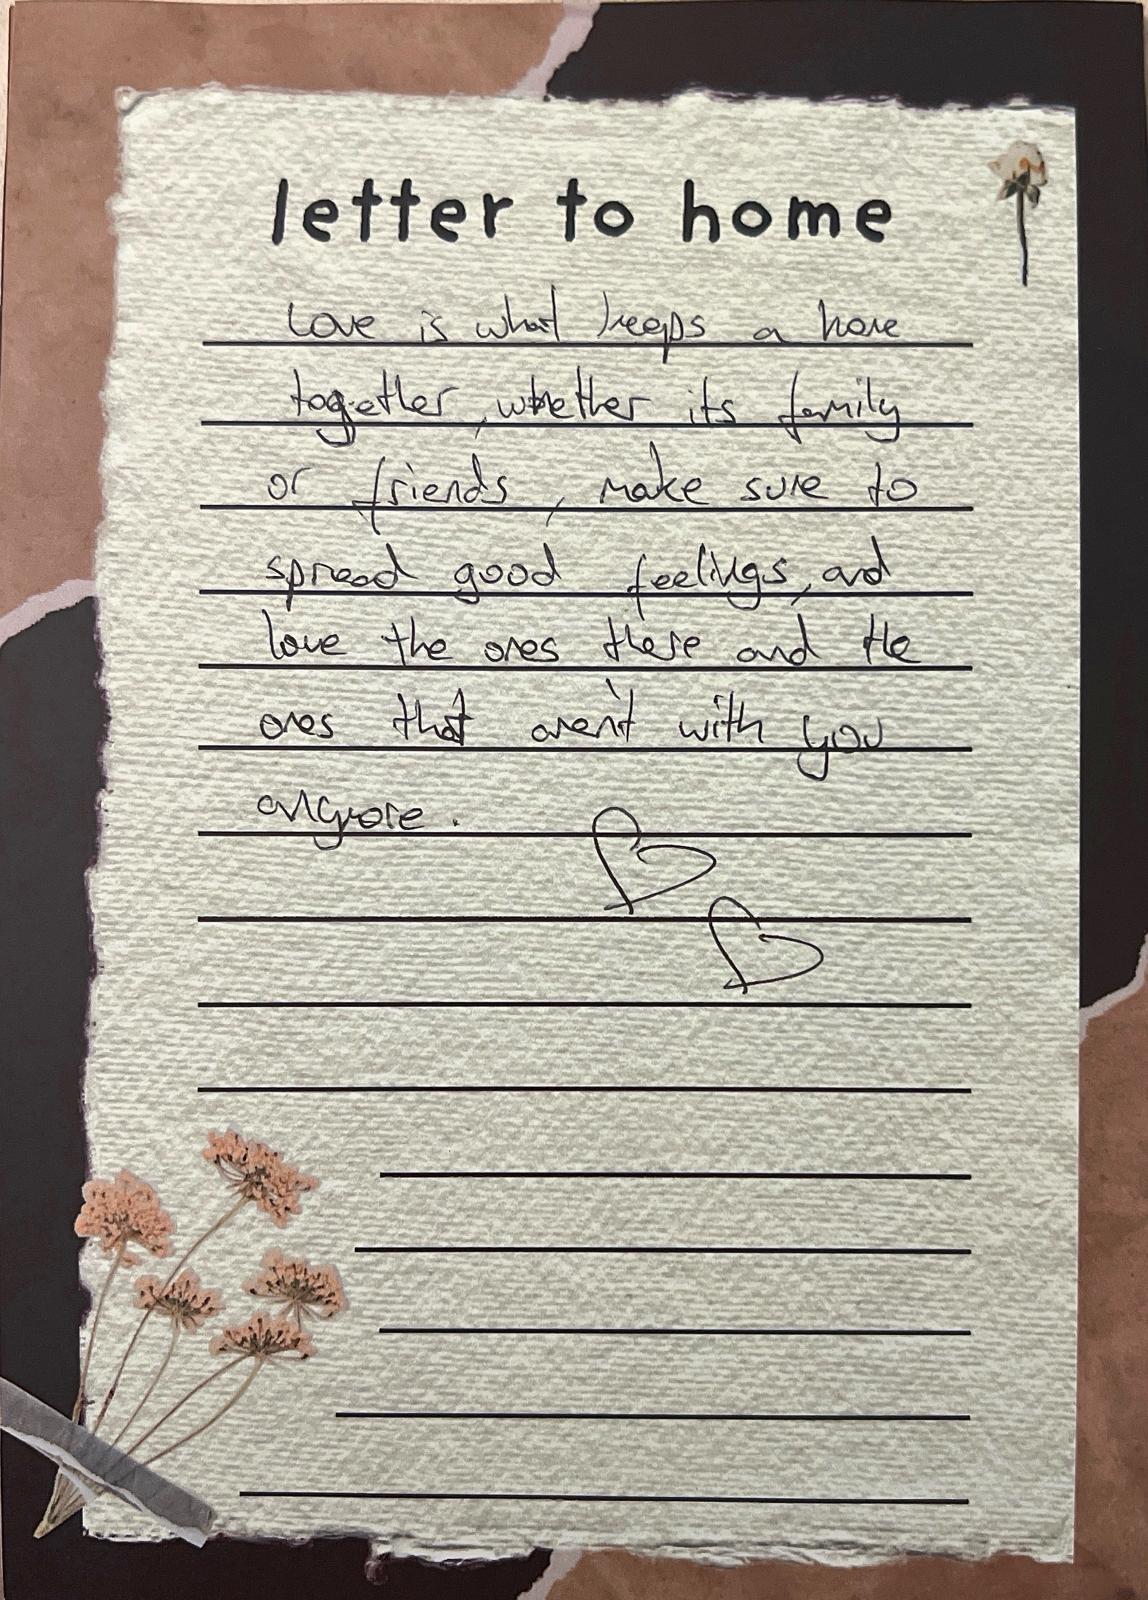 letter to home
Love is what keeps a home
together, whether its family
or friends, make sure to
spread good feelings, and
love the ones there and the
ones that aren't with you
anymore.